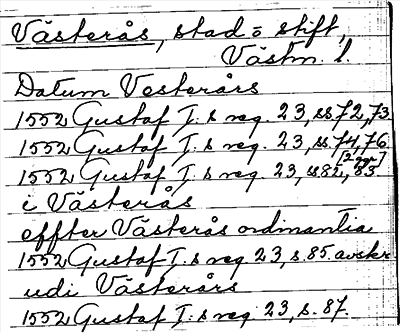 Västerås, stad o stift,
Västm. l.
Datum Vesterårs
1552 Gustaf I:s reg. 23, ss 72, 73
1552 Gustaf I:s reg. 23, ss 74, 76
[2 ggr]
1552 Gustaf I:s reg. 23, ss 82, 83
i Västerås
effter Västerås ordinantia
1552 Gustaf I:s reg 23, s. 85. avskr
udi Västerårs
1552 Gustaf I:s reg 23, s. 87.